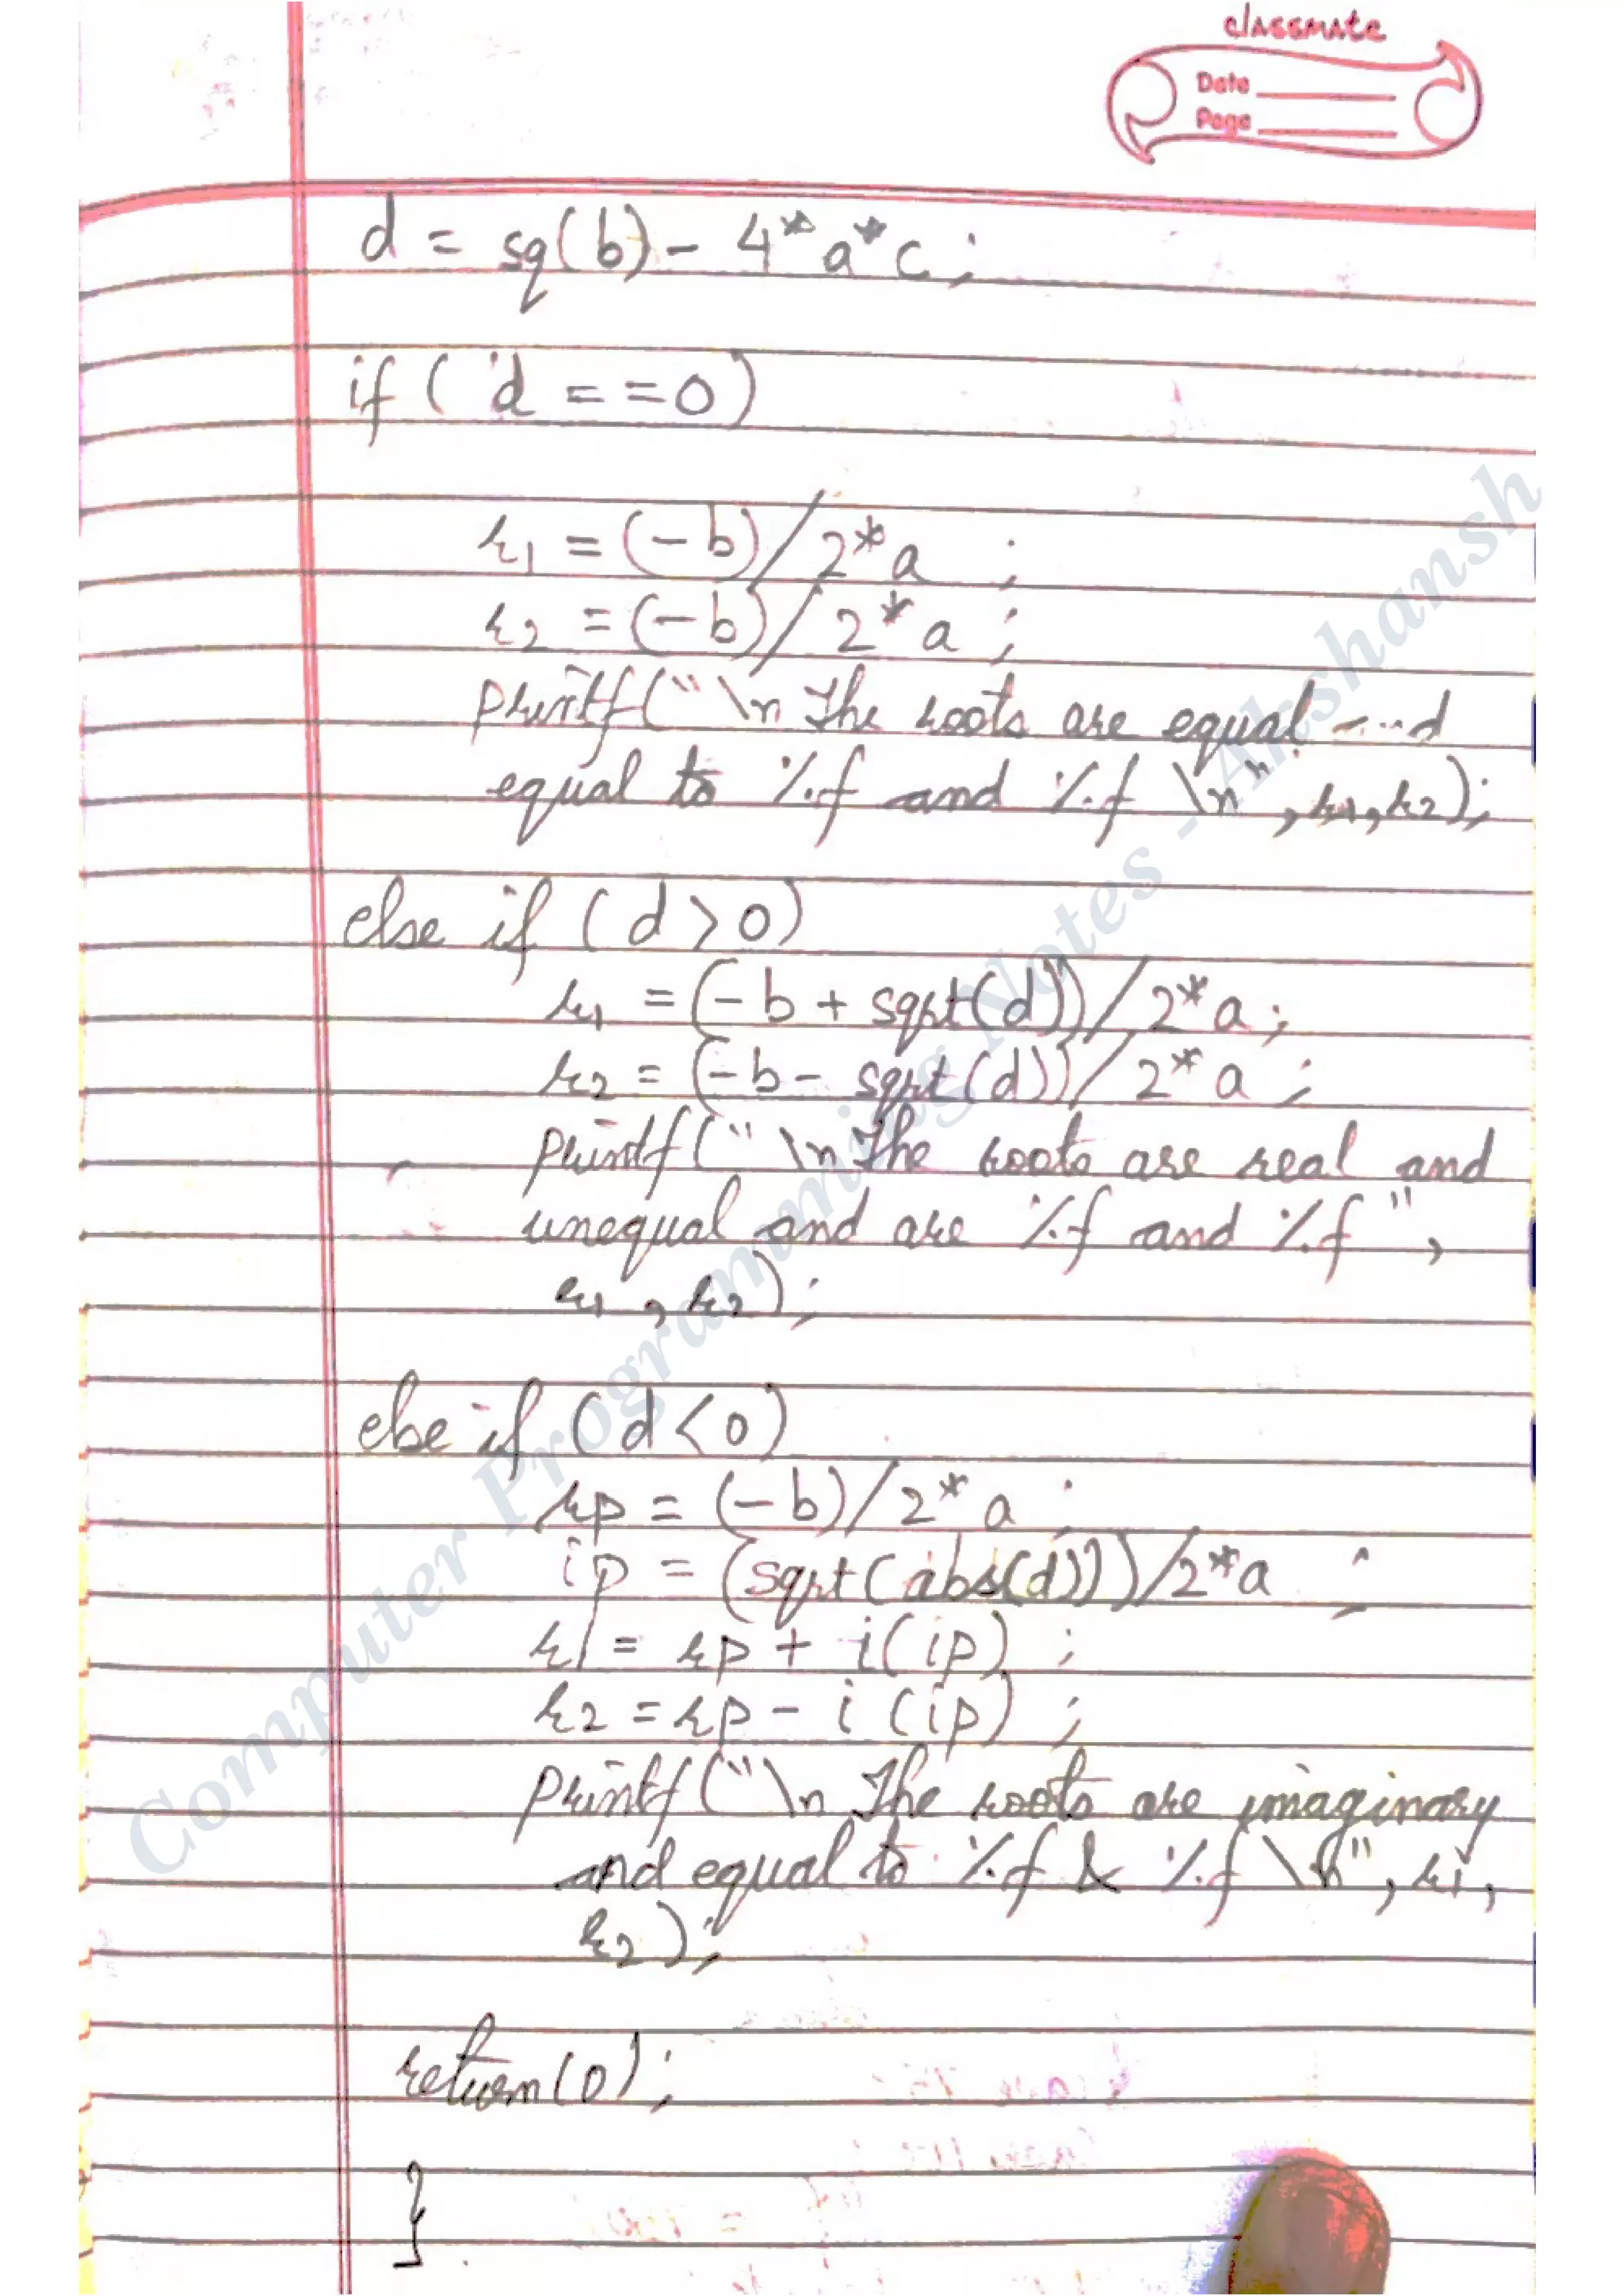 classmate
Date
Page
d = sq(b) - 4*a*c;
if ( d = = 0)
r1 = (-b)/2*a ;
r2 = (-b)/2*a ;
printf("\n The roots are equal
equal to %f and %f \n", r1, r2);
else if (d > 0)
r1 = (-b + sqrt(d))/2*a;
r2 = (-b - sqrt(d))/2*a ;
printf("\n The roots are real and
unequal and are %f and %f",
r1, r2);
else if (d < 0)
rp = (-b)/2*a ;
ip = (sqrt(abs(d)))/2*a ;
r1 = rp + i(ip) ;
r2 = rp - i(ip) ;
printf("\n The roots are imaginary
and equal to %f & %f \n", r1,
r2);
return(0);
}
Computer Programming Notes - Akshansh